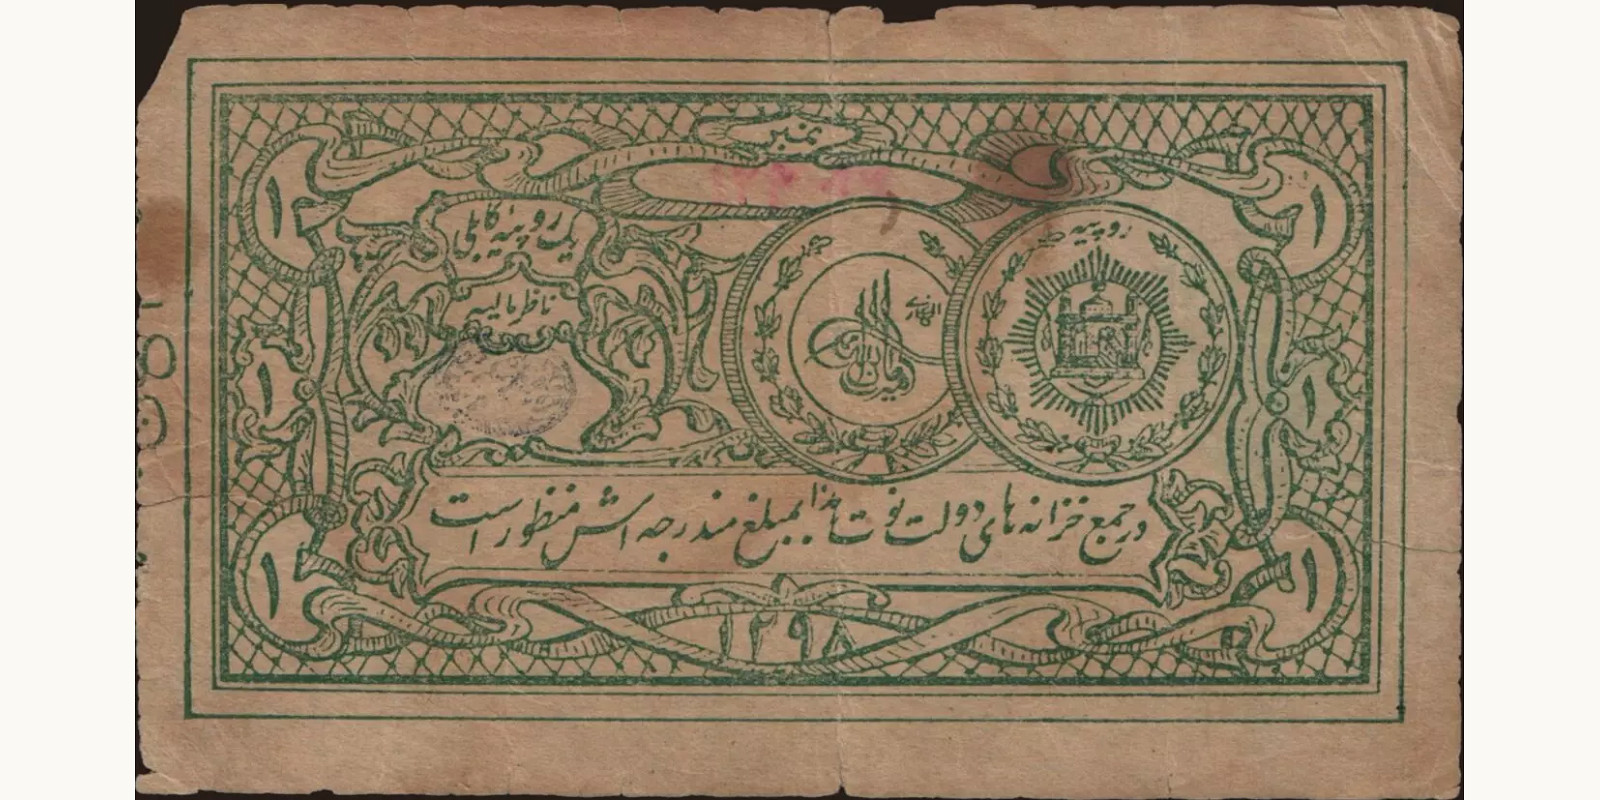 نمبر
یک روپیهٔ کابلی
روپیه
ناظر مالیه
الغازی
۱
۱
۱
۱
۱
۱
در جمع خزانه های دولت نوت هذا بمبلغ مندرجه اش منظور است
۱۲۹۸